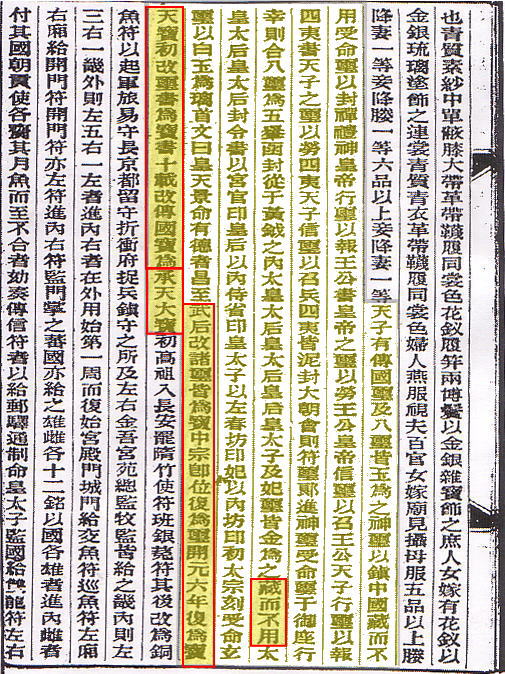 也青質素紗中單蔽膝大帶革帶韈履同裳色花釵履笄兩博鬢以金銀雜寶飾之庶人女嫁有花釵以
金銀琉璃塗飾之連裳青質青衣革帶韈履同裳色婦人燕服視夫百官女嫁廟見攝母服五品以上媵
降妻一等妾降媵一等六品以上妾降妻一等天子有傳國璽及八璽皆玉爲之神璽以鎮中國藏而不
用受命璽以封禪禮神皇帝行璽以報王公書皇帝之璽以勞王公皇帝信璽以召王公天子行璽以報
四夷書天子之璽以勞四夷天子信璽以召兵四夷皆泥封大朝會則符璽郎進神璽受命璽于御座行
幸則合八璽爲五轝函封從于黃鉞之內太皇太后皇太后皇后皇太子及妃璽皆金爲之藏而不用太
皇太后皇太后封令書以宮官印皇后以內侍省印皇太子以左春坊印妃以內坊印初太宗刻受命玄
璽以白玉爲螭首文曰皇天景命有德者昌至武后改諸璽皆爲寶中宗即位復爲璽開元六年復爲寶
天寶初改璽書爲寶書十載改傳國寶爲承天大寶初高祖入長安罷隋竹使符班銀菟符其後改爲銅
魚符以起軍旅易守長京都留守折衝府捉兵鎮守之所及左右金吾宮苑總監牧監皆給之畿內則左
三右一畿外則左五右一左者進內右者在外用始第一周而復始宮殿門城門給交魚符巡魚符左廂
右廂給開門符閉門符亦左符進內右符監門掌之蕃國亦給之雄雌各十二銘以國名雄者進內雌者
付其國朝貢使各齎其月魚而至不合者劾奏傳信符者以給郵驛通制命皇太子監國給雙龍符左右